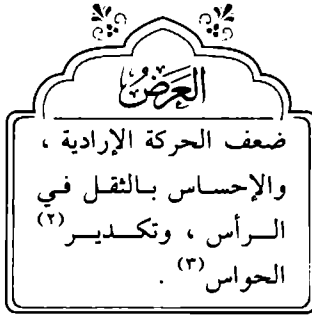 العَرَضُ
ضعف الحركة الإرادية ،
والإحساس بالثقل في
الرأس ، وتكدير(٢)
الحواس(٣) .